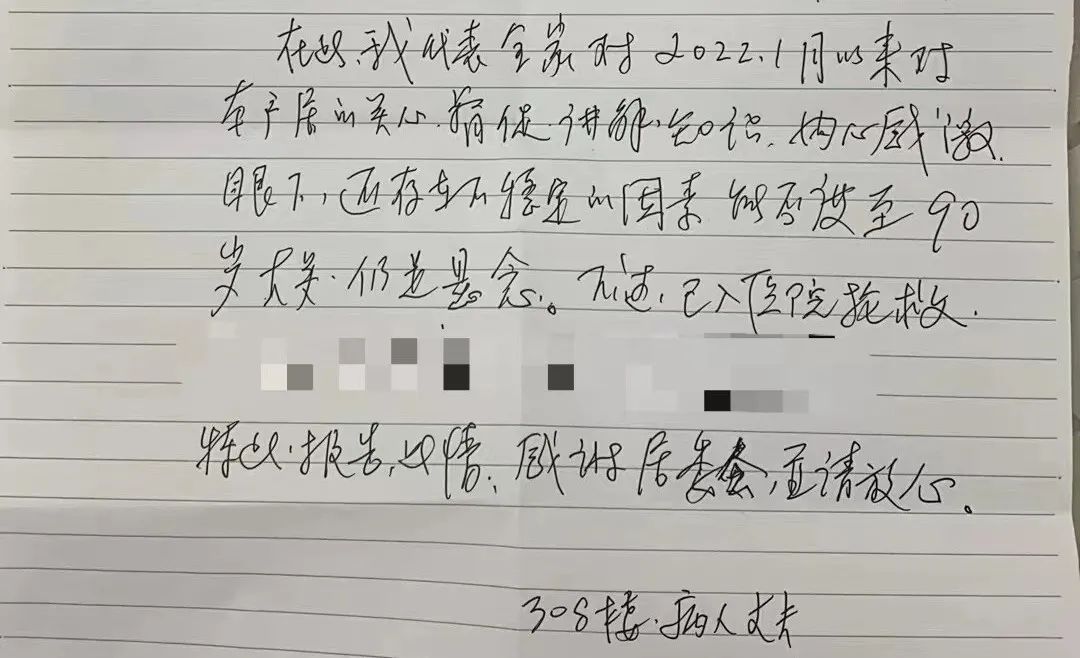 在此,我代表全家对2022.1月以来对
本户居的关心.督促讲解知识,内心感激.
眼下,还存在不稳定的因素能否渡至90
岁大关.仍是悬念。不过,已入住院抢救.
特此.报告,此情,感谢居委会,并请放心。
308楼.病人丈夫